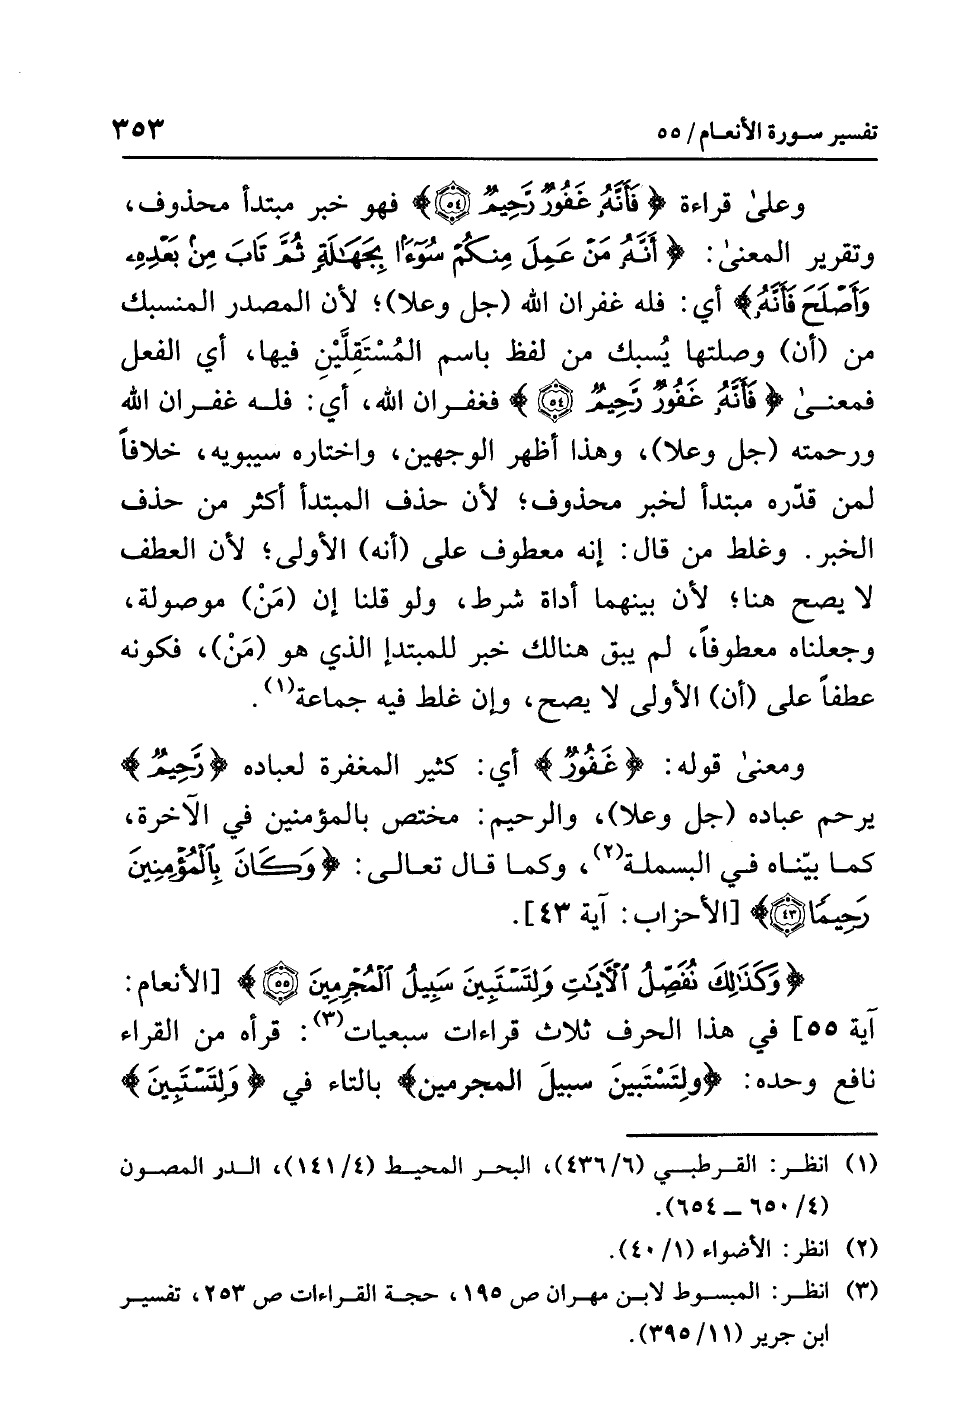 تفسير سـورة الأنعـام/ ٥٥
٣٥٣
وعلىٰ قراءة ﴿ فَأَنَّهُۥ غَفُورٌ رَّحِيمٌ ٥٤﴾ فهو خبر مبتدأ محذوف،
وتقرير المعنىٰ: ﴿ أَنَّهُۥ مَنْ عَمِلَ مِنكُمْ سُوٓءًۢا بِجَهَٰلَةٍ ثُمَّ تَابَ مِنۢ بَعْدِهِۦ
وَأَصْلَحَ فَأَنَّهُۥ﴾ أي: فله غفران الله (جل وعلا)؛ لأن المصدر المنسبك
من (أن) وصلتها يُسبك من لفظ باسم المُسْتَقِلَّيْنِ فيها، أي الفعل
فمعنـىٰ ﴿ فَأَنَّهُۥ غَفُورٌ رَّحِيمٌ ٥٤﴾ فغفـران الله، أي: فلـه غفـران الله
ورحمته (جل وعلا)، وهذا أظهر الوجهين، واختاره سيبويه، خلافاً
لمن قدّره مبتدأ لخبر محذوف؛ لأن حذف المبتدأ أكثر من حذف
الخبر. وغلط من قال: إنه معطوف على (أنه) الأولى؛ لأن العطف
لا يصح هنا؛ لأن بينهما أداة شرط، ولو قلنا إن (مَنْ) موصولة،
وجعلناه معطوفاً، لم يبق هنالك خبر للمبتدإ الذي هو (مَنْ)، فكونه
عطفاً على (أن) الأولى لا يصح، وإن غلط فيه جماعة(١).
ومعنىٰ قوله: ﴿ غَفُورٌ ﴾ أي: كثير المغفرة لعباده ﴿ رَّحِيمٌ ﴾
يرحم عباده (جل وعلا)، والرحيم: مختص بالمؤمنين في الآخرة،
كمـا بيّنـاه فـي البسملـة(٢)، وكمـا قـال تعـالـى: ﴿ وَكَانَ بِٱلْمُؤْمِنِينَ
رَحِيمًا ٤٣﴾ [الأحزاب: آية ٤٣].
﴿ وَكَذَٰلِكَ نُفَصِّلُ ٱلْءَايَٰتِ وَلِتَسْتَبِينَ سَبِيلُ ٱلْمُجْرِمِينَ ٥٥﴾ [الأنعام:
آية ٥٥] في هذا الحرف ثلاث قراءات سبعيات(٣): قرأه من القراء
نافع وحده: ﴿ولِتَسْتَبينَ سبيلَ المجرمين﴾ بالتاء في ﴿ وَلِتَسْتَبِينَ ﴾
(١) انظـر: القـرطبـي (٤٣٦/٦)، البحـر المحيـط (١٤١/٤)، الـدر المصـون
(٦٥٠/٤ ـ ٦٥٤).
(٢) انظر: الأضواء (٤٠/١).
(٣) انظـر: المبسـوط لابـن مهـران ص ١٩٥، حجـة القـراءات ص ٢٥٣، تفسيـر
ابن جرير (٣٩٥/١١).